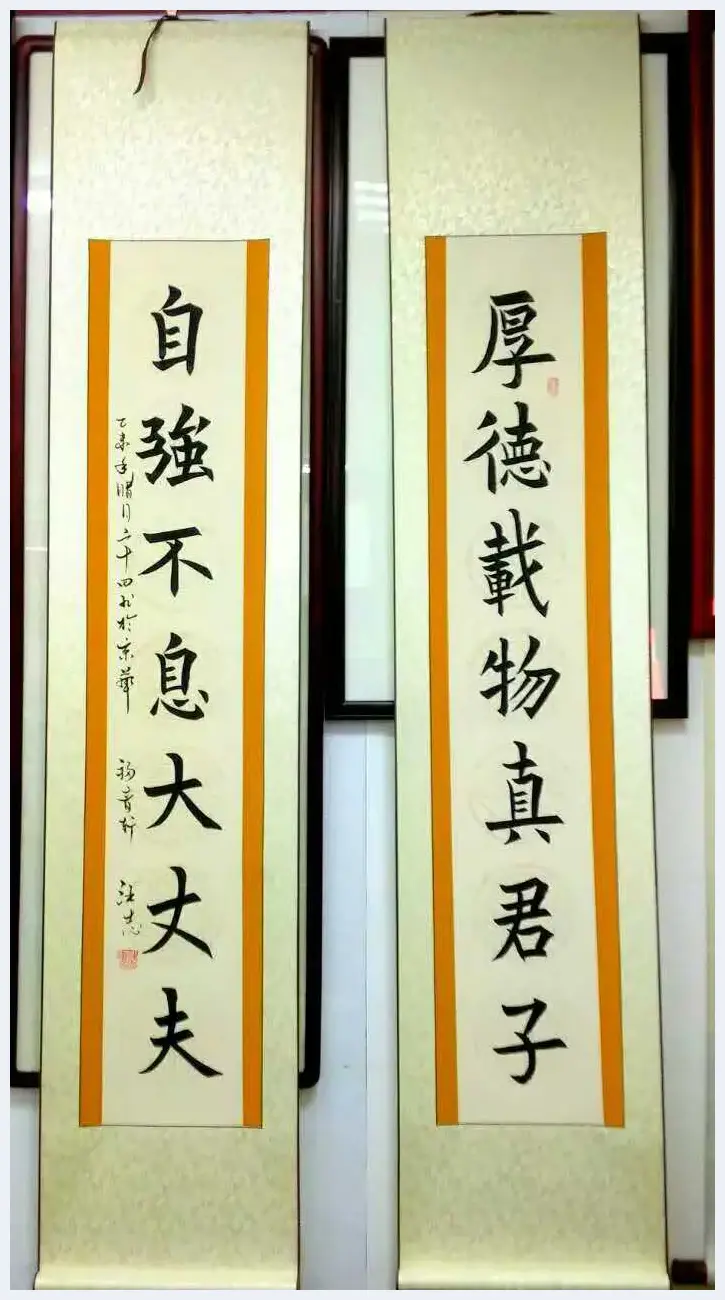 厚德載物真君子
自強不息大丈夫
乙未年腊月二十四书於京華
汪志